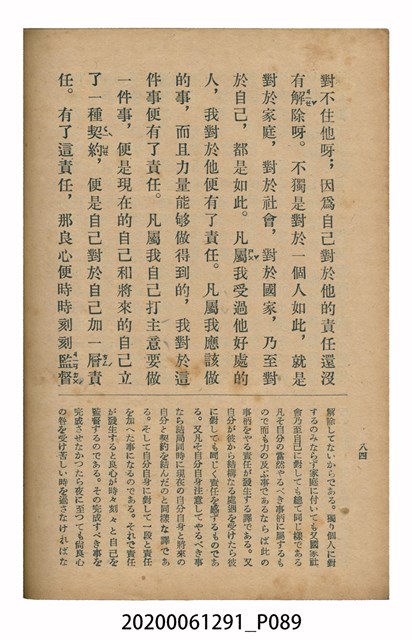 對不住他呀；因爲自己對於他的責任還沒
有解除呀。不獨是對於一個人如此，就是
對於家庭，對於社會，對於國家，乃至對
於自己，都是如此。凡屬我受過他好處的
人，我對於他便有了責任。凡屬我應該做
的事，而且力量能够做得到的，我對於這
件事便有了責任。凡屬我自己打主意要做
一件事，便是現在的自己和將來的自己立
了一種契約，便是自己對於自己加一層責
任。有了這責任，那良心便時時刻刻監督
八四
解除してないからである。獨り個人に對
するのみならず家庭に付いても又國家社
會乃至自己に對しても總て同じ樣である
凡そ自分の當然やるべき事柄に屬するも
ので而も力の及ぶ事であるならば此の
事柄をやる責任が發生する譯である。又
自分が彼から結構なる處遇を受けたら彼
に對しても同じく責任を感ずるものであ
る。又凡そ自分自身注意してやるべき事
なら結局同時に現在の自分自身と將來の
自分と契約を結んだのと同樣な譯であ
る。そして自分自身に對して一段と責任
を加へた事になるのである。それで責任
が發生すると良心が時々刻々と自己を
監督するのである。その完成すべき事を
完成させなかつたら夜に至つても尙良心
の咎を受け苦しい時を過さなければな
20200061291_P089